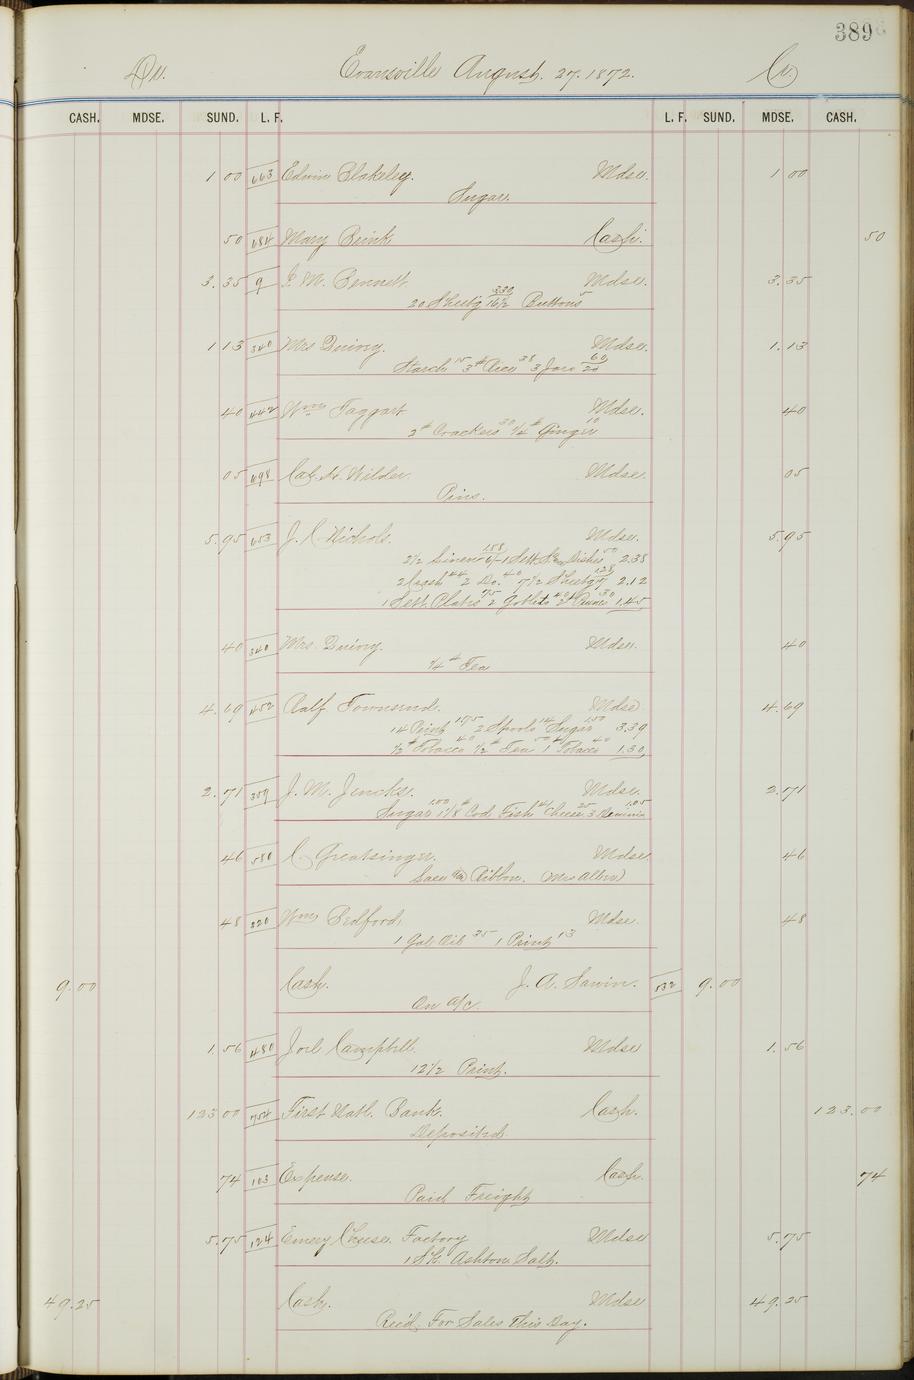 389
Dr. Evansville August. 27. 1872. Cr.
CASH. MDSE. SUND. L. F. L. F. SUND. MDSE. CASH.
1 00 663 Edwin Blakeley. Mdse. 1 00
Sugar.
50 684 Mary Brink Cash. 50
3.35 9 Mdse. 3.35
20 Sheetg 16½ 330 Buttons 5
1 13 340 Mrs Quivey. Mdse. 1.13
Starch 15 3# Rice 38 3 Jars 20 60
40 442 Wm Taggart Mdse. 40
2# Crackers 30 ¼# Ginger 10
05 698 Wilder. Mdse. 05
Pins.
5.95 653 J. C. Nichols. Mdse. 5.95
2½ Linen 188 1 Sett Dishes 50 2.38
2 Crash 44 2 Do. 40 7½ Sheetg 17 128 2.12
1 Sett Plates 75 2 Goblets 40 2# Prunes 30 1.45
40 340 Mrs. Quivey. Mdse. 40
¼# Tea
4.69 452 Ralf Townsend. Mdse 4.69
14 Print 175 2 Spools 14 Sugar 150 3.39
½# Tobacco 40 ½# Tea 50 1# Tobacco 40 1.30
2.71 359 J. M. Jencks. Mdse. 2.71
Sugar 1.00 1⅛# Cod Fish 41 Cheese 25 3 1.05
46 580 C. Greatsinger. Mdse. 46
Lace Ribbon. (Mrs Allen)
48 220 Wm Bedford. Mdse. 48
1 Gal Oil 35 1 Print 13
9.00 Cash. J. A. Sawin. 532 9.00
On a/c.
1.56 480 Joel Campbell. Mdse 1.56
12½ Print.
123 00 754 First Natl. Bank. Cash. 123.00
Deposited.
74 103 Expense. Cash. 74
Paid Freight
5.75 124 Emery Cheese Factory Mdse 5.75
1 Sk. Ashton Salt.
49.25 Cash. Mdse 49.25
Recd For Sales This Day.